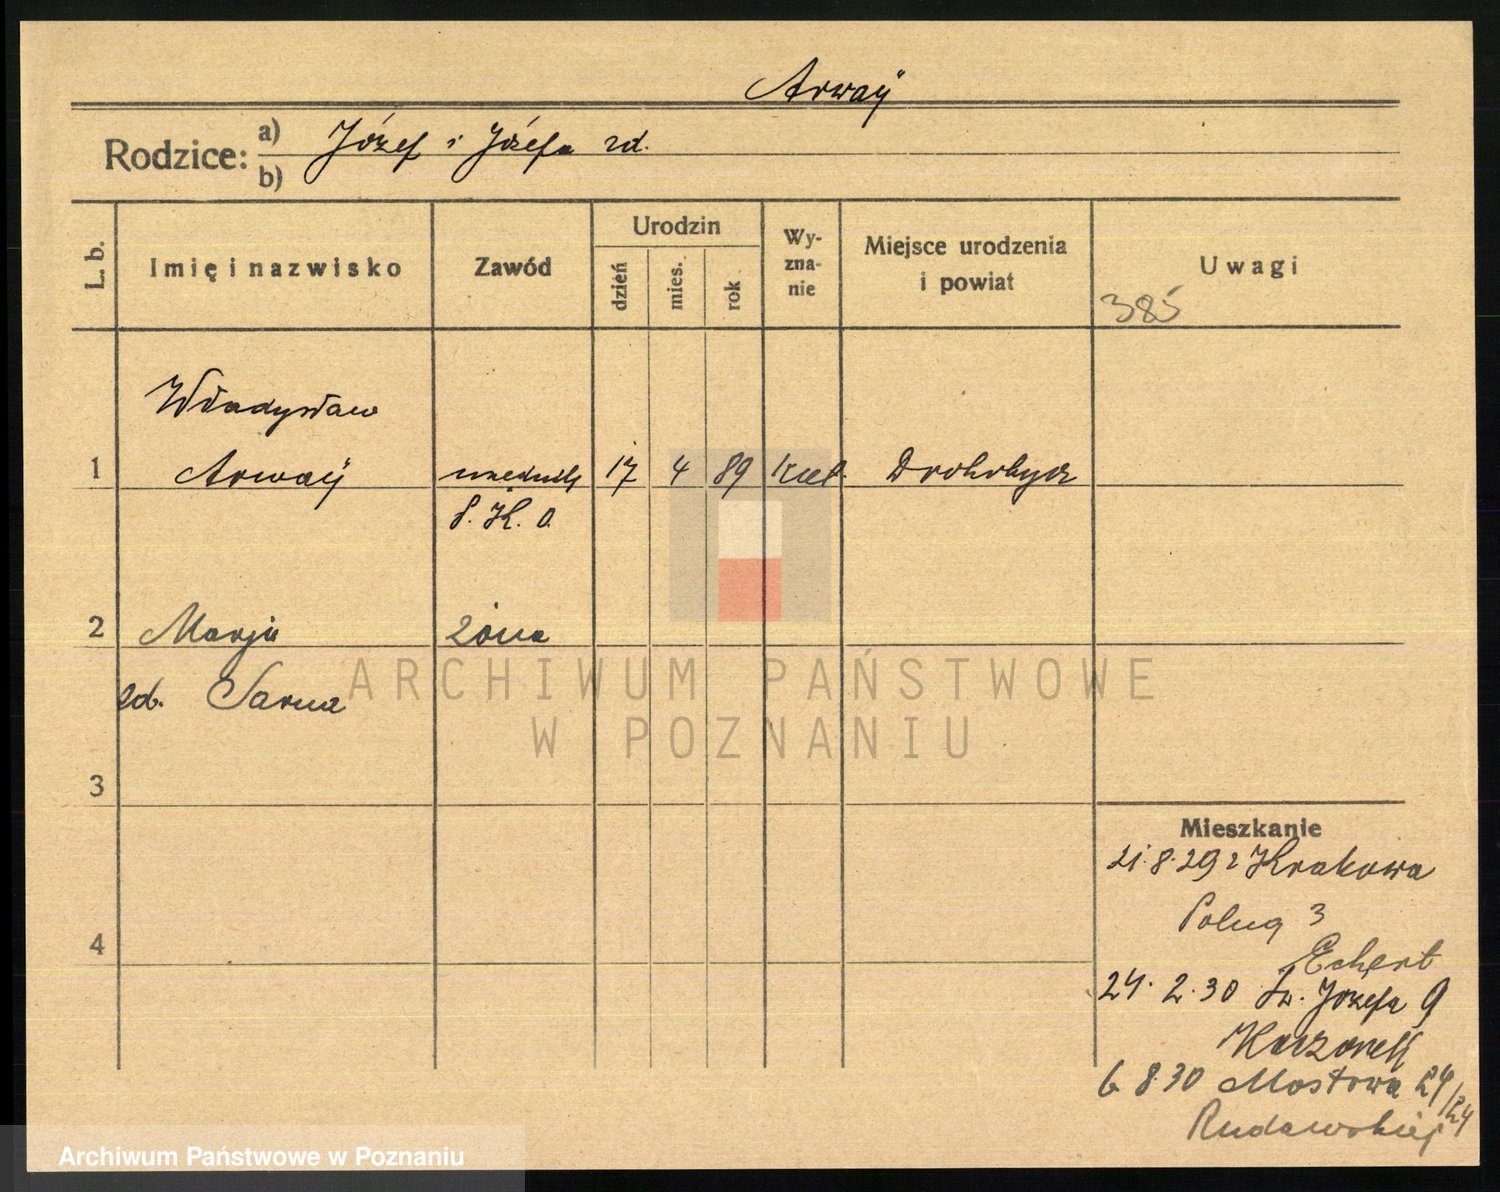 Arway
Rodzice: a) b) Józef i Józefa zd.
L. b. Imię i nazwisko Zawód Urodzin dzień mies. rok Wy-zna-nie Miejsce urodzenia i powiat Uwagi
385
Władysław
1 Arway urzędnik 17 4 89 kat. Drohobycz
P. K. O.
2 Marja żona
zd. Sarna
ARCHIWUM PAŃSTWOWE
W POZNANIU
3
Mieszkanie
21.8.29 z Krakowa
3
4
Echert
24.2.30 Św. Józefa 9
6 8 30 Mostowa 24/24
Rudawskiej
Archiwum Państwowe w Poznaniu